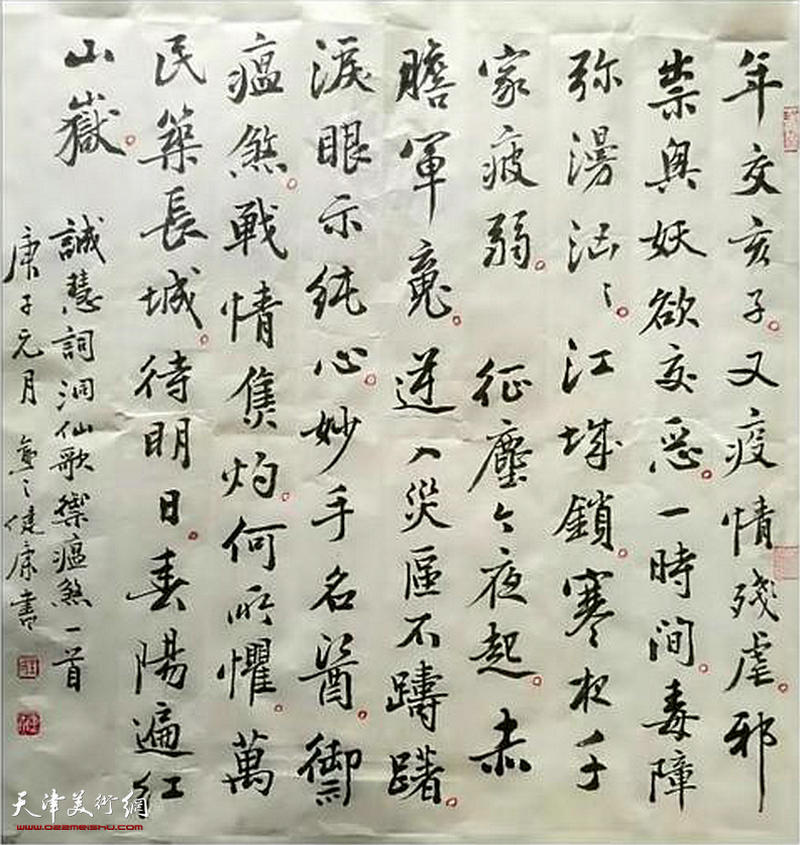 年交亥子。又疫情殘虐。邪
祟與妖欲交惡。一時间。毒障
弥漫滔〻。江城鎖。寒夜千
家疲弱。
征塵今夜起。赤
膽軍寬。逆入災區不躊躇。
淚眼示纯心。妙手名醫。御
瘟煞。戰情焦灼。何所懼。萬
民築長城。待明日。春陽遍紅
山嶽。
誠慧詞洞仙歌禦瘟煞一首
庚子元月 健康書
天津美術網
www.022meishu.com